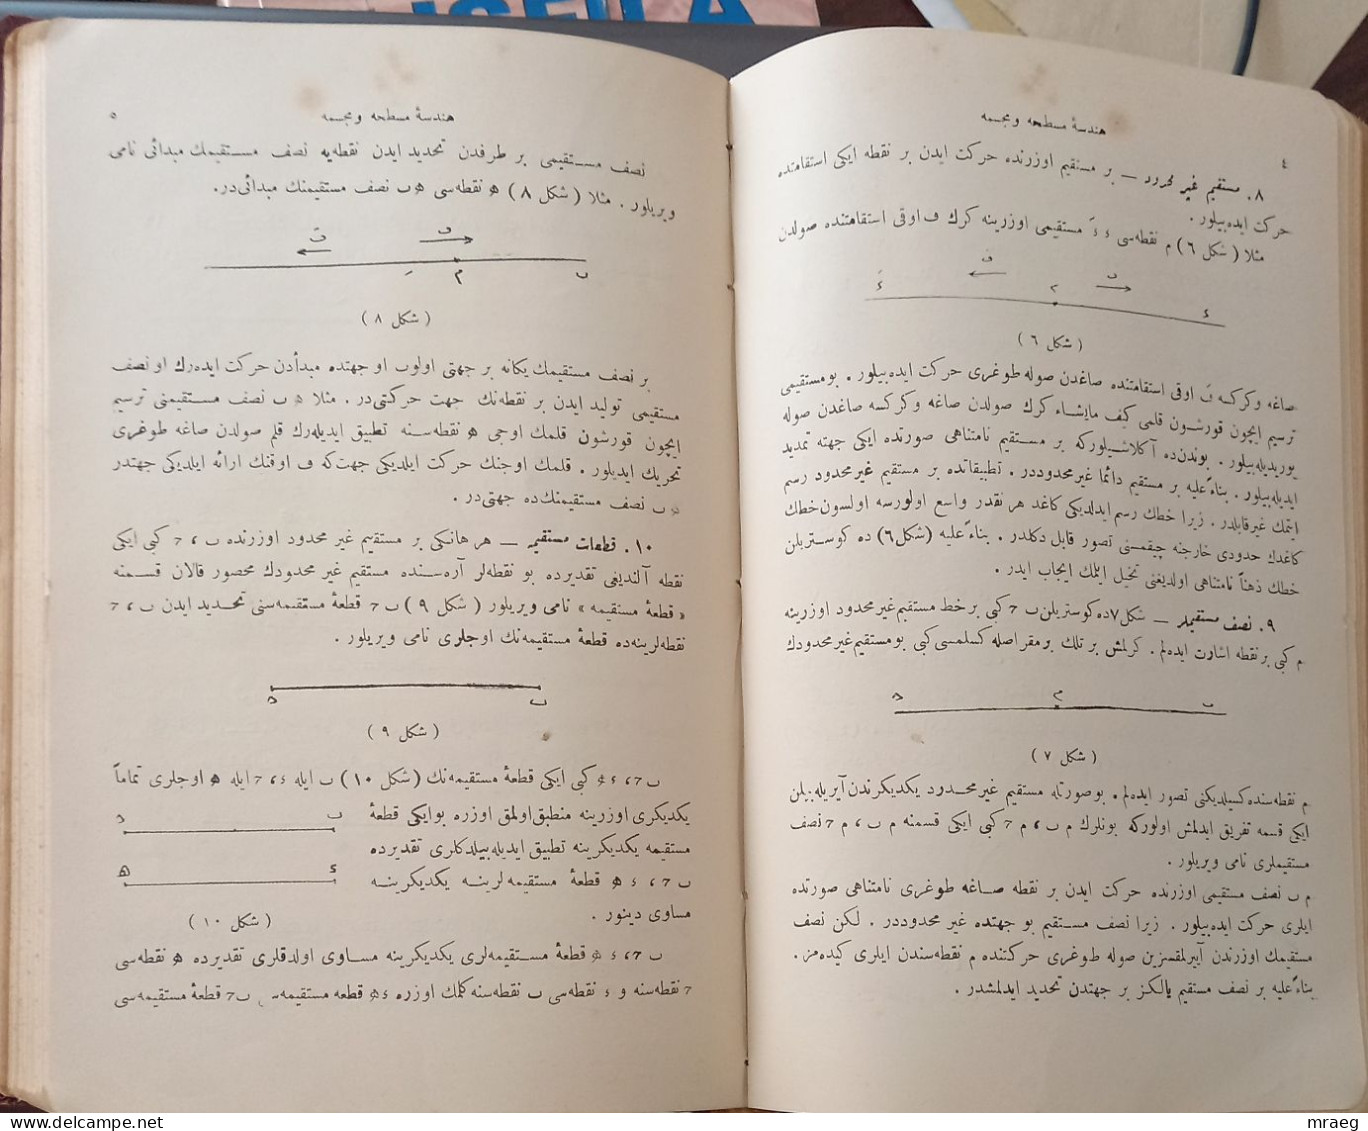 هندسهٔ مسطحه ومجسمه
٤
٨. مستقيم غير محدود — بر مستقيم اوزرنده حركت ايدن بر نقطه ايكى استقامتده
حركت ايده‌بيلور.
مثلا (شكل ٦) م نقطه‌سى ء ءَ مستقيمى اوزرينه كرك ف اوقى استقامتنده صولدن
فَ ف
ءَ م ء
(شكل ٦)
صاغه وكركسه فَ اوقى استقامتنده صاغدن صوله طوغرى حركت ايده‌بيلور. بومستقيمى
ترسيم ايچون قورشون قلمى كيف مايشاء كرك صولدن صاغه وكركسه صاغدن صوله
يوريديله‌بيلور. بوندن‌ده آكلاشيلوركه بر مستقيم نامتناهى صورتده ايكى جهته تمديد
ايديله‌بيلور. بناءً عليه بر مستقيم دائما غيرمحدوددر. تطبيقاتده بر مستقيم غيرمحدود رسم
ايتمك غيرقابلدر. زيرا خطك رسم ايدلديكى كاغد هر نقدر واسع اولورسه اولسون خطك
كاغدك حدودى خارجنه چيقمسنى تصور قابل دكلدر. بناءً عليه (شكل ٦) ده كوستريلن
خطك ذهناً نامتناهى اولديغنى تخيل ايتمك ايجاب ايدر.
٩. نصف مستقيملر — شكل ٧ ده كوستريلن ب ح كبى بر خط مستقيم غيرمحدود اوزرينه
م كبى بر نقطه اشارت ايده‌لم. كرلمش بر تلك برمقراصله كسلمسى كبى بومستقيم غيرمحدودك
ح م ب
(شكل ٧)
م نقطه‌سنده كسيلديكنى تصور ايده‌لم. بوصورتله مستقيم غيرمحدود يكديكرندن آيريله‌بيلن
ايكى قسمه تفريق ايدلمش اولوركه بونلرك م ب، م ح كبى ايكى قسمنه م ب، م ح نصف
مستقيملرى نامى ويريلور.
م ب نصف مستقيمى اوزرنده حركت ايدن بر نقطه صاغه طوغرى نامتناهى صورتده
ايلرى حركت ايده‌بيلور. زيرا نصف مستقيم بو جهتده غير محدوددر. لكن نصف
مستقيمك اوزرندن آيرلمقسزين صوله طوغرى حركتنده م نقطه‌سندن ايلرى كيده‌مز.
بناءً عليه بر نصف مستقيم يالكز بر جهتدن تحديد ايدلمشدر.
هندسهٔ مسطحه ومجسمه
٥
نصف مستقيمى بر طرفدن تحديد ايدن نقطه‌يه نصف مستقيمك مبدائى نامى
ويريلور. مثلا (شكل ٨) ه نقطه‌سى ه ب نصف مستقيمنك مبدائى‌در.
فَ ف
م ب
(شكل ٨)
بر نصف مستقيمك يكانه بر جهتى اولوب او جهتده مبدأدن حركت ايده‌رك او نصف
مستقيمى توليد ايدن بر نقطه‌نك جهت حركتى‌در. مثلا ه ب نصف مستقيمنى ترسيم
ايچون قورشون قلمك اوجى ه نقطه‌سنه تطبيق ايديله‌رك قلم صولدن صاغه طوغرى
تحريك ايديلور. قلمك اوجنك حركت ايلديكى جهت‌كه ف اوقنك ارائه ايلديكى جهتدر
ه ب نصف مستقيمنك‌ده جهتى‌در.
١٠. قطعات مستقيمه — هر هانكى بر مستقيم غير محدود اوزرنده ب، ح كبى ايكى
نقطه آلنديغى تقديرده بو نقطه‌لر آره‌سنده مستقيم غير محدودك محصور قالان قسمنه
«قطعهٔ مستقيمه» نامى ويريلور (شكل ٩) ب ح قطعهٔ مستقيمه‌سنى تحديد ايدن ب، ح
نقطه‌لرينه‌ده قطعهٔ مستقيمه‌نك اوجلرى نامى ويريلور.
ح ب
(شكل ٩)
ب ح، ء ه كبى ايكى قطعهٔ مستقيمه‌نك (شكل ١٠) ب ايله ء، ح ايله ه اوجلرى تماماً
يكديكرى اوزرينه منطبق اولمق اوزره بوايكى قطعهٔ
مستقيمه يكديكرينه تطبيق ايديله‌بيلدكلرى تقديرده
ب ح، ء ه قطعهٔ مستقيمه‌لرينه يكديكرينه
مساوى دينور.
ح ب
ه ء
(شكل ١٠)
ب ح، ء ه قطعهٔ مستقيمه‌لرى يكديكرينه مساوى اولدقلرى تقديرده ه نقطه‌سى
ح نقطه‌سنه و ء نقطه‌سى ب نقطه‌سنه كلمك اوزره ء ه قطعه مستقيمه‌سى ب ح قطعهٔ مستقيمه‌سى
mraeg